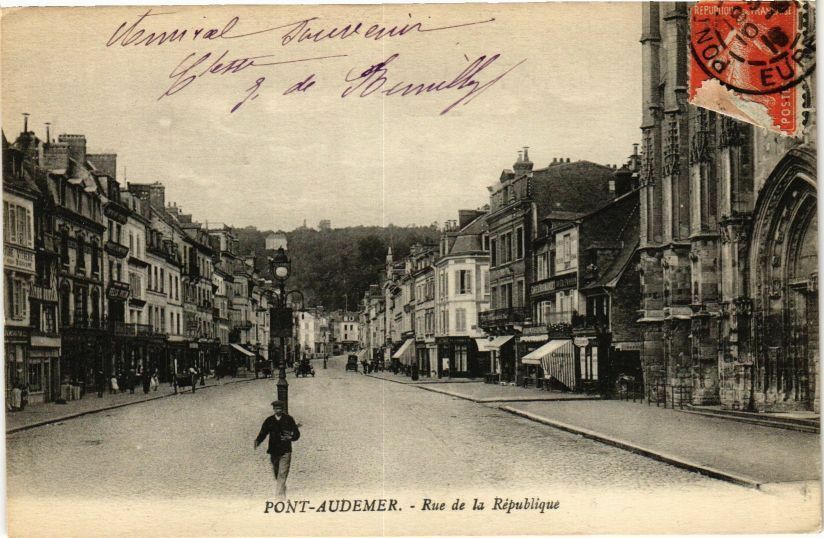 Amical Souvenir
Ctesse G. de Rumilly
RÉPUBLIQUE FRANÇAISE
POSTES
PONT
EURE
PONT-AUDEMER. - Rue de la République